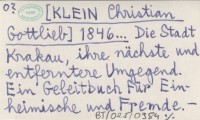 03 [KLEIN Christian
Gottlieb] 1846... Die Stadt
Krakau, ihre nächste und
entferntere Umgegend.
Ein Geleitbuch für Ein-
heimische und Fremde.-